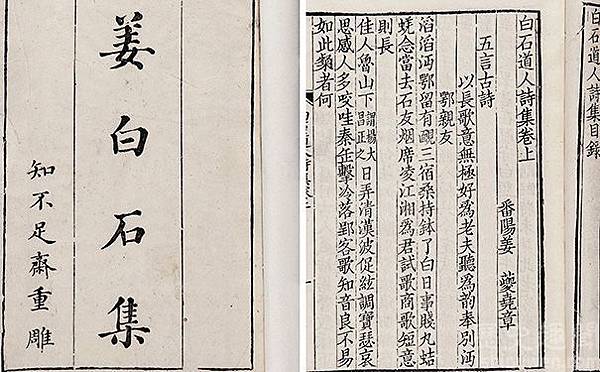 姜白石集
知不足齋重雕
白石道人詩集目錄
白石道人詩集卷上
番陽姜 夔堯章
五言古詩
以長歌意無極好爲老夫聽爲韵奉別沔
鄂親友
滔滔沔鄂留有靦三宿桑持鉢了白日事賤九蛣
蜣念當去石友烟席凌江湘爲君試歌商歌短意
則長
佳人魯山下謂楊大昌正之日弄清漢波促絃調寶瑟哀
思感人多咬哇秦缶擊冷落郢客歌知音良不易
如此類者何